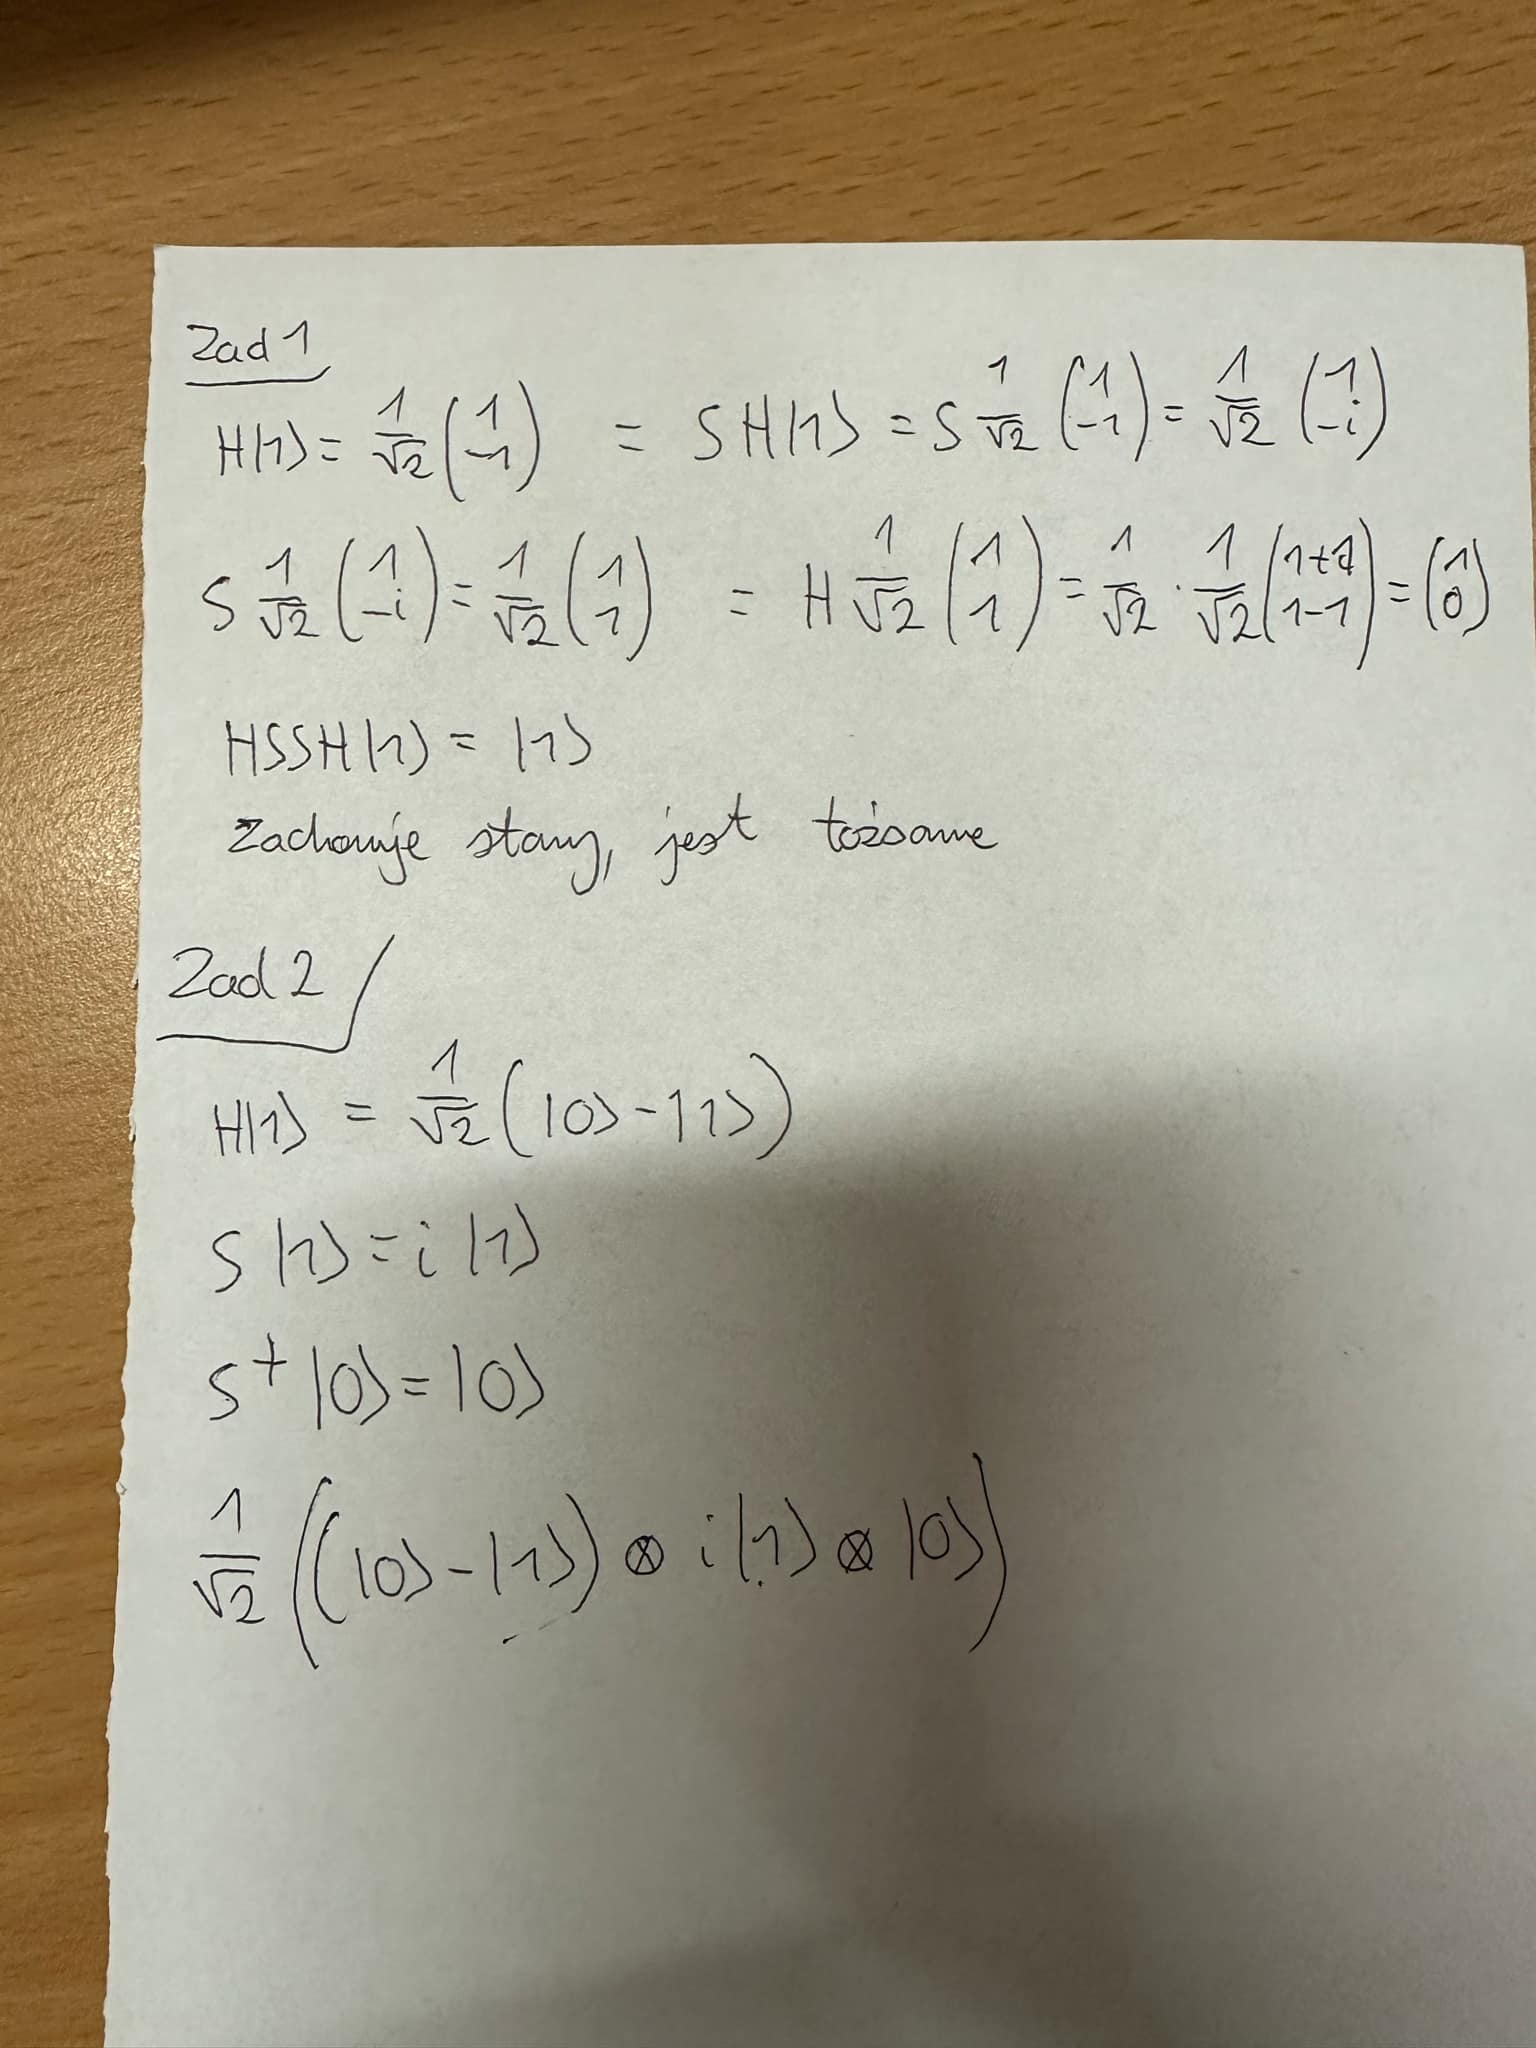 Zad 1
H|1⟩ = 1/√2 (1 -1) = SH|1⟩ = S 1/√2 (1 -1) = 1/√2 (1 -i)
S 1/√2 (1 -i) = 1/√2 (1 1) = H 1/√2 (1 1) = 1/√2 · 1/√2 (1+1 1-1) = (1 0)
HSSH|1⟩ = |1⟩
Zachowuje stany, jest tożsame
Zad 2
H|1⟩ = 1/√2 (|0⟩ - |1⟩)
S|1⟩ = i|1⟩
S†|0⟩ = |0⟩
1/√2 ((|0⟩ - |1⟩) ⊗ i|1⟩ ⊗ |0⟩)